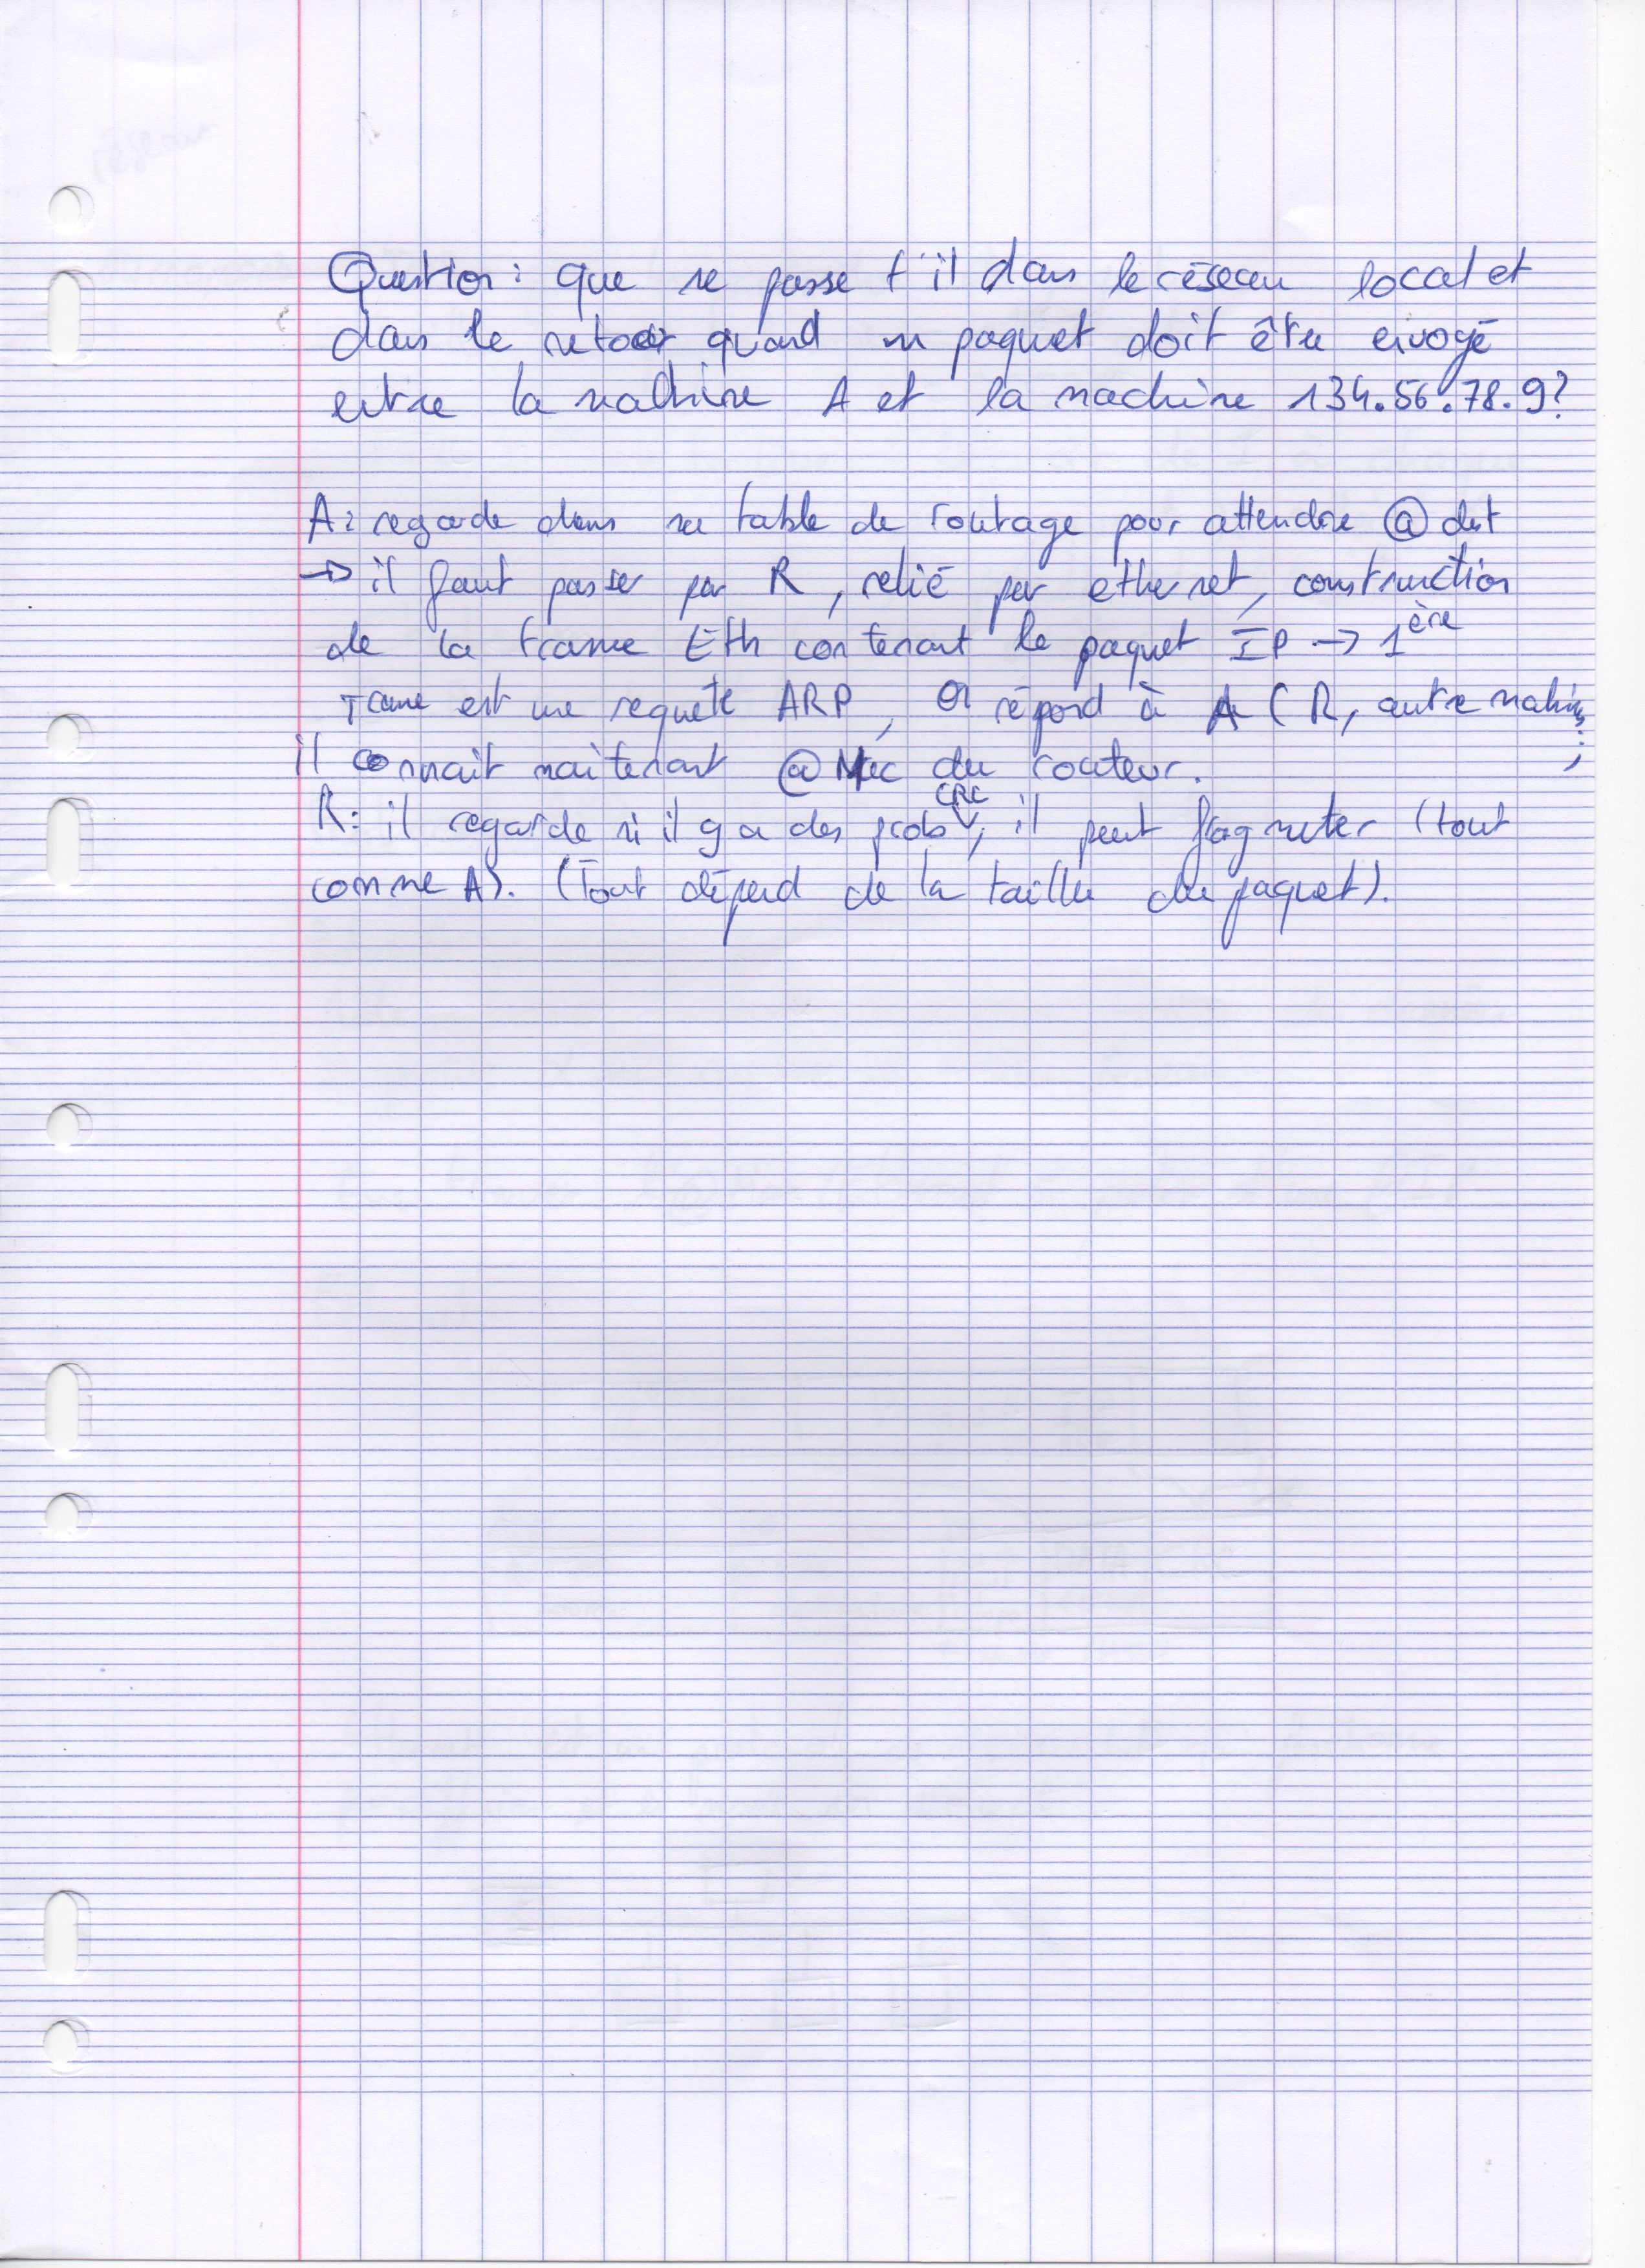 Question : que se passe t'il dans le réseau local et
dans le retour quand un paquet doit être envoyé
entre la machine A et la machine 134.56.78.9?
A : regarde dans sa table de routage pour attendre @ dst
→ il faut passer par R, relié par ethernet, construction
de la trame Eth contenant le paquet IP → 1ère
Trame est une requête ARP, on répond à A (R, autre machine...)
il connait maintenant @ Mac du routeur.
R : il regarde si il y a des prob CRC, il peut fragmenter (tout
comme A). (Tout dépend de la taille du paquet).